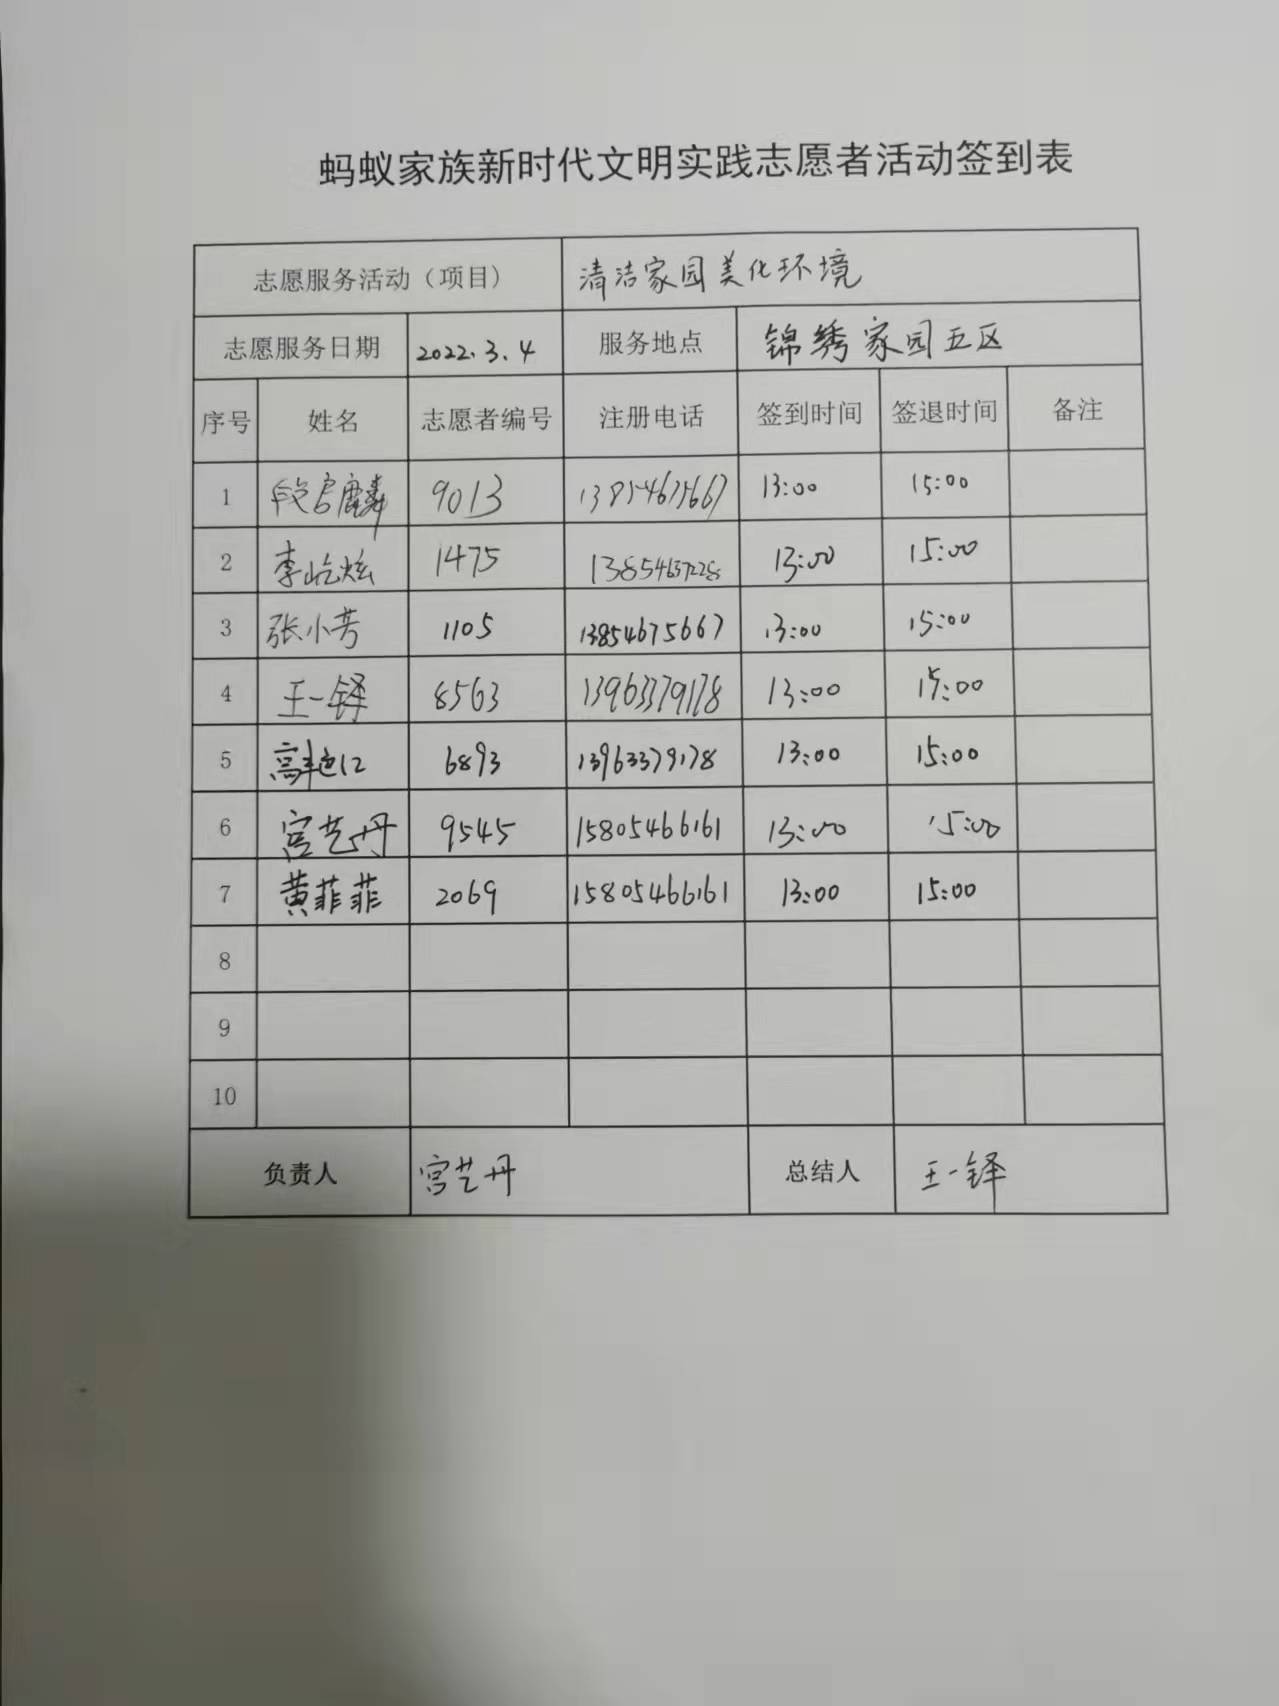 蚂蚁家族新时代文明实践志愿者活动签到表
志愿服务活动（项目） 清洁家园美化环境
志愿服务日期 2022.3.4 服务地点 锦绣家园五区
序号 姓名 志愿者编号 注册电话 签到时间 签退时间 备注
1 段启麟 9013 13854675667 13:00 15:00
2 李屹炫 1475 13854637228 13:00 15:00
3 张小芳 1105 13854675667 13:00 15:00
4 王一铎 8563 13963379178 13:00 15:00
5 6893 13963379178 13:00 15:00
6 宫艺丹 9545 15805466161 13:00 15:00
7 黄菲菲 2069 15805466161 13:00 15:00
8
9
10
负责人 宫艺丹 总结人 王一铎